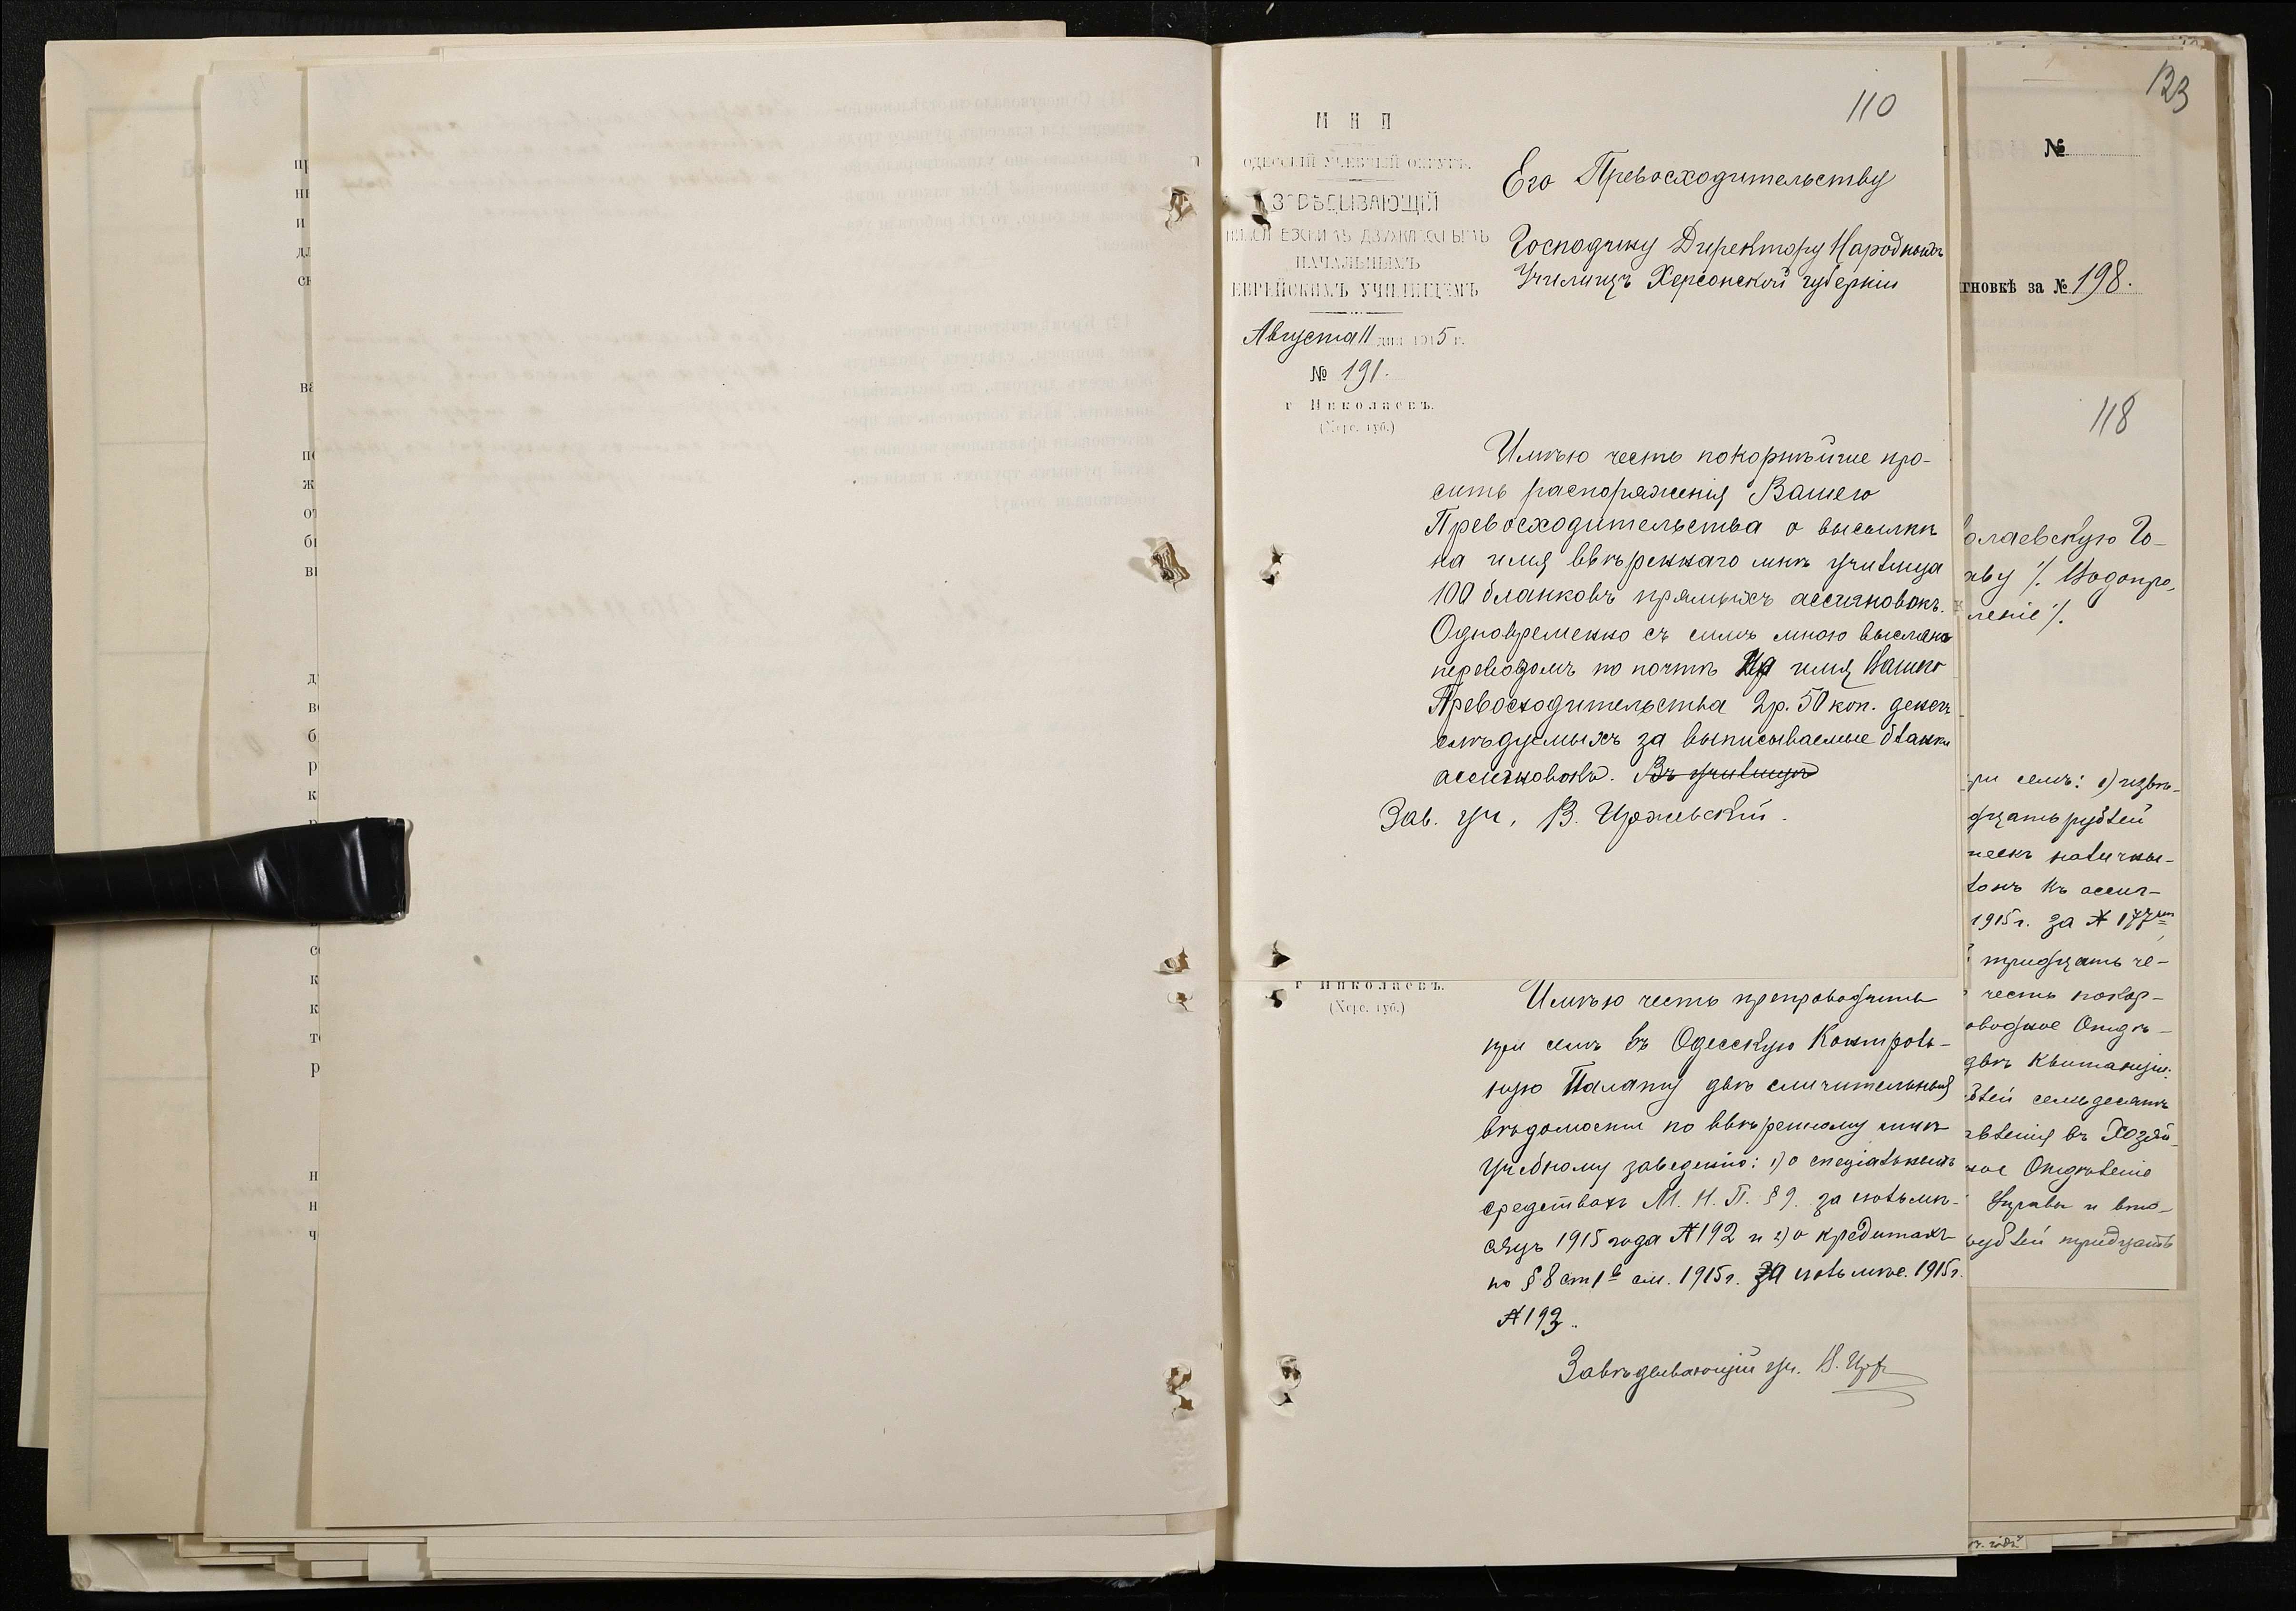 110
М Н П
ОДЕССКІЙ УЧЕБНЫЙ ОКРУГЪ.
ЗАВѢДЫВАЮЩІЙ
НИКОЛАЕВСКИМЪ ДВУХКЛАССНЫМЪ
НАЧАЛЬНЫМЪ
ЕВРЕЙСКИМЪ УЧИЛИЩЕМЪ
Августа 11 дня 1915 г.
№ 191.
г Николаевъ.
(Херс. губ.)
Его Превосходительству
Господину Директору Народныхъ
Училищъ Херсонской губерніи
Имѣю честь покорнѣйше про-
сить распоряженія Вашего
Превосходительства о высылкѣ
на имя ввѣреннаго мнѣ училища
100 бланковъ прямыхъ ассигновокъ.
Одновременно съ симъ мною высланы
переводомъ по почтѣ на имя Вашего
Превосходительства 2р. 50 коп. денегъ
слѣдуемыхъ за выписываемые бланки
ассигновокъ. Въ училищѣ
Зав. уч. В. Цржевскій.
г Николаевъ.
(Херс. губ.)
Имѣю честь препроводить
при семъ въ Одесскую Контроль-
ную Палату двѣ сличительныя
вѣдомости по ввѣренному мнѣ
учебному заведенію: 1) о спеціальныхъ
средствахъ М. Н. П. § 9. за іюль мѣ-
сяцъ 1915 года № 192 и 2) о кредитахъ
по § 8 ст 1 см. 1915 г. за іюль мѣс. 1915 г.
№ 193.
Завѣдывающій уч. В. Црж
123
№
тновкѣ за № 198.
118
олаевскую Го-
аву /. Водопро-
леніе /.
ри семъ: 1)
дцать рублей
1915 г. за № 177
тридцать че-
честь покор-
оводное Отдѣ-
двѣ квитанціи:
блей семьдесятъ
вленія въ Хозяй-
ное Отдѣленіе
Управы и вто-
рублей тридцать